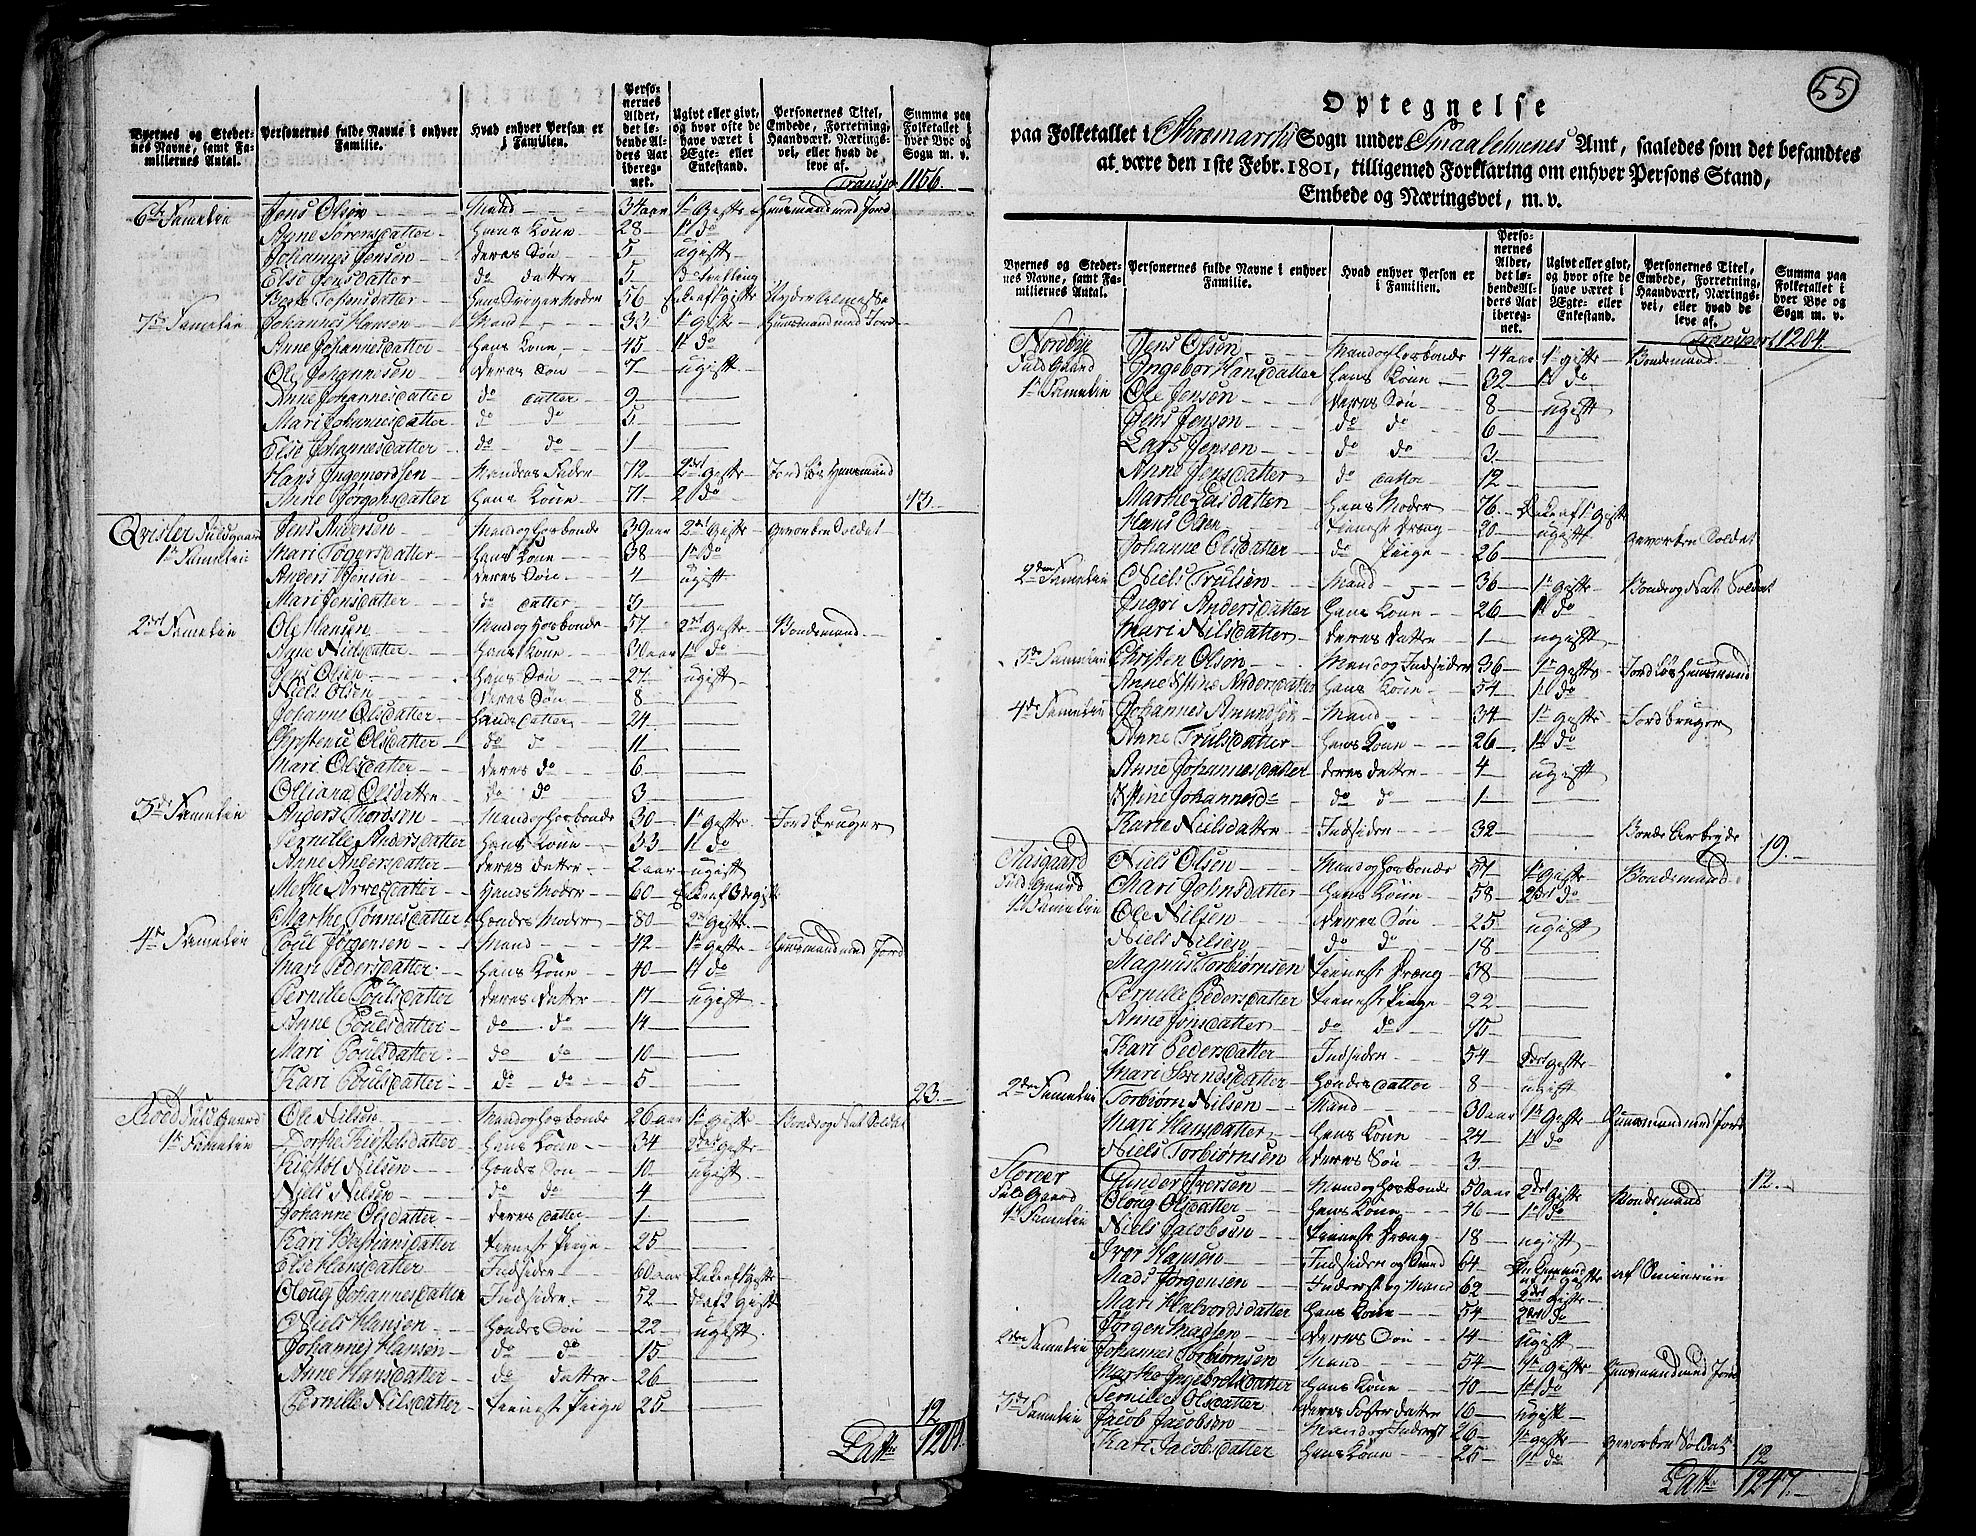 Byernes og Stedernes Navne, samt Familiernes Antal. | Personernes fulde Navne i enhver Familie. | Hvad enhver Person er i Familien. | Personernes Alder, det løbende Alders Aar iberegnet. | Ugivt eller givt, og hvor ofte de have været i Ægte- eller Enkestand. | Personernes Titel, Embede, Forretning, Haandværk, Næringsvei, eller hvad de leve af. | Summa paa Folketallet i hver Bye og Sogn m. v.
Transp 1156.
6te Famelie Jens Olsen Mand 34 aar 1te Gifte Huusmand med Jord
Anne Sørensdatter hans Kone 28 1te do
Johannes Jensen deres Søn 5 ugift
Else Jensdatter do datter 5 do
Berte hans 56
7de Famelie Johannes Hansen Mand 33 1te Gifte Huusmand med Jord
Anne Johannesdatter hans Kone 45 1te do
Ole Johannesen deres Søn 7 ugift
Anne Johannesdatter do datter 9
Mari Johannesdatter do do 5
Else Johannesdatter do do 1
Hans Ingemordsen Mandens Fader 72 2det Gifte Jordløs Huusmand
Anne Jørgensdatter hans Kone 71 2 do 13.
Qvisler Fuldgaard Jens Andersen Mand og Hosbonde 39 aar 2det Gifte Gevorben Soldat
1te Famelie Mari Tøgersdatter hans Kone 38 1te do
Anders Jensen deres Søn 4 ugift
Mari Jensdatter do datter 3
2det Famelie Ole Hansen Mand og Hosbonde 57 2det Gifte Bondemand
Anne Nielsdatter hans Kone 30 aar 1te do
Jens Olsen hans Søn 27 ugift
Niels Olsen deres Søn 8
Johanne Olsdatter hans datter 24
Christense Olsdatter do d 11
Mari Olsdatter deres do 6
Olliana Olsdatter do do 3
3de Famelie Anders Thordsen Mand og Hosbonde 30 1te Gifte Jordbruger
Pernille Andersdatter hans Kone 33 1te do
Anne Andersdatter deres datter 2 aar ugift
Mette Arnesdatter Hands Moder 60
Marthe Tønnesdatter Hendes Moder 80 2det Gift
4te Famelie Poul Jørgensen Mand 42 1te Gifte Huusmand med Jord
Mari Pedersdatter hans Kone 40 1te do
Pernille Poulsdatter deres datter 17 ugift
Anne Poulsdatter do do 14
Mari Poulsdatter do do 10
Kari Poulsdatter do do 5 23.
Roed Fuld Gaard Ole Nilsen Mand og Hosbonde 26 aar 1te Gifte Bonde og Nat Soldat
1te Famelie Dorthe Kiystelsdatter hans Kone 34 2det Gifte
Kiystøl Nilsen Hendes Søn 10 ugift
Niels Nilsen do do 4
Johanne Olsdatter deres datter 1
Kari Bastiansdatter tieneste Pige 25
Else Hansdatter Indsidder 60 aar Enke af 1te Gifte
Oloug Johannesdatter Indsidder 52 do af 2 Gift
Niels Hansen Hendes Søn 22 ugift
Johannes Hansen do do 15
Anne Hansdatter do datter 26
Pernille Nilsdatter tieneste Pige 25 12
Latte 1204.
55
Optegnelse
paa Folketallet i Sogn under Smaalehnenes Amt, saaledes som det befandtes
at være den 1ste Febr. 1801, tilligemed Forklaring om enhver Persons Stand,
Embede og Næringsvei, m. v.
Byernes og Stedernes Navne, samt Familiernes Antal. | Personernes fulde Navne i enhver Familie. | Hvad enhver Person er i Familien. | Personernes Alder, det løbende Alders Aar iberegnet. | Ugivt eller givt, og hvor ofte de have været i Ægte- eller Enkestand. | Personernes Titel, Embede, Forretning, Haandværk, Næringsvei, eller hvad de leve af. | Summa paa Folketallet i hver Bye og Sogn m. v.
Transport 1204.
Nordbye Jens Olsen Mand og Hosbonde 44 aar 1te Gifte Bondemand
Fuld Gaard Ingebor Hansdatter hans Kone 32 1te do
1te Famelie Ole Jensen deres Søn 8 ugift
Jens Jensen do do 6
Lars Jensen do do 3
Anne Jensdatter do datter 12
Marthe Larsdatter hans Moder 76 Enke af 1te Gifte
Hans Olsen tieneste Dræng 20 ugift Gevorben Soldat
Johanne Olsdatter do Piige 26
2den Famelie Niels Trulsen Mand 36 1te Gifte Bonde og Nat Soldat
Ingri Andersdatter hans Kone 26 1te do
Mari Nilsdatter deres datter 1 ugift
3de Famelie Christen Olsøn Mand og Indsider 36 1te Gifte Jordløs Huusmand
Anne Stine Andersdatter hans Kone 54 1te do
4de Famelie Johannes Amundsøn Mand 34 1te Gifte Jordbruger
Anne Trulsdatter hans Kone 26 1te do
Anne Johannesdatter deres datter 4 ugift
Stine Johannesd do do 1
Karie Nielsdatter Indsider 32 Bonde Arbeyde 19.
Aasgaard Niels Olsen Mand og Hosbonde 51 1te Gifte Bondemand
Fuld Gaard Mari Johnsdatter hans Kone 58 2det do
1te Famelie Ole Nilsen deres Søn 25 ugift
Niels Nilsen do do 18
Magnus Torbiørnsen tieneste Dræng 38
Pernille Pedersdatter tieneste Piige 22
Anne Jonsdatter do do 45
Kari Pedersdatter Indsider 54 2det Gifte
Mari Svendsdatter Hendes datter 8 ugift
2den Famelie Torbiørn Nilsen Mand 30 aar 1te Gifte Huusmand med Jord
Mari Hansdatter hans Kone 24 1te do
Niels Torbiørnsen deres Søn 3 12.
Gunder Iversen Mand og Hosbonde 50 aar 2det Gifte Bondemand
Fuld Gaard Oloug Olsdatter hans Kone 46 1te do
1te Famelie Niels Jacobsøn tieneste Dræng 18 ugift
Iver Hansøn Indsider 64 af 1te Gifte
Mads Jørgensen Inderst og Mand 62 2det Gifte
Mari Halvordsdatter hans Kone 54 2det do
Jørgen Madsen deres Søn 14 ugift
2den Famelie Johannes Torbiørnsen Mand 54 1te Gifte Huusmand med Jord
Marthe Ingebretsdatter hans Kone 40 1te do
Pernille Olsdatter deres Foster datter 16 ugift
3de Famelie Jacob Jacobsøn Mand og Inderst 26 1te Gifte Gevorben Soldat
Kari Jacobsdatter hans Kone 25 1te do 12
Latte 1247.